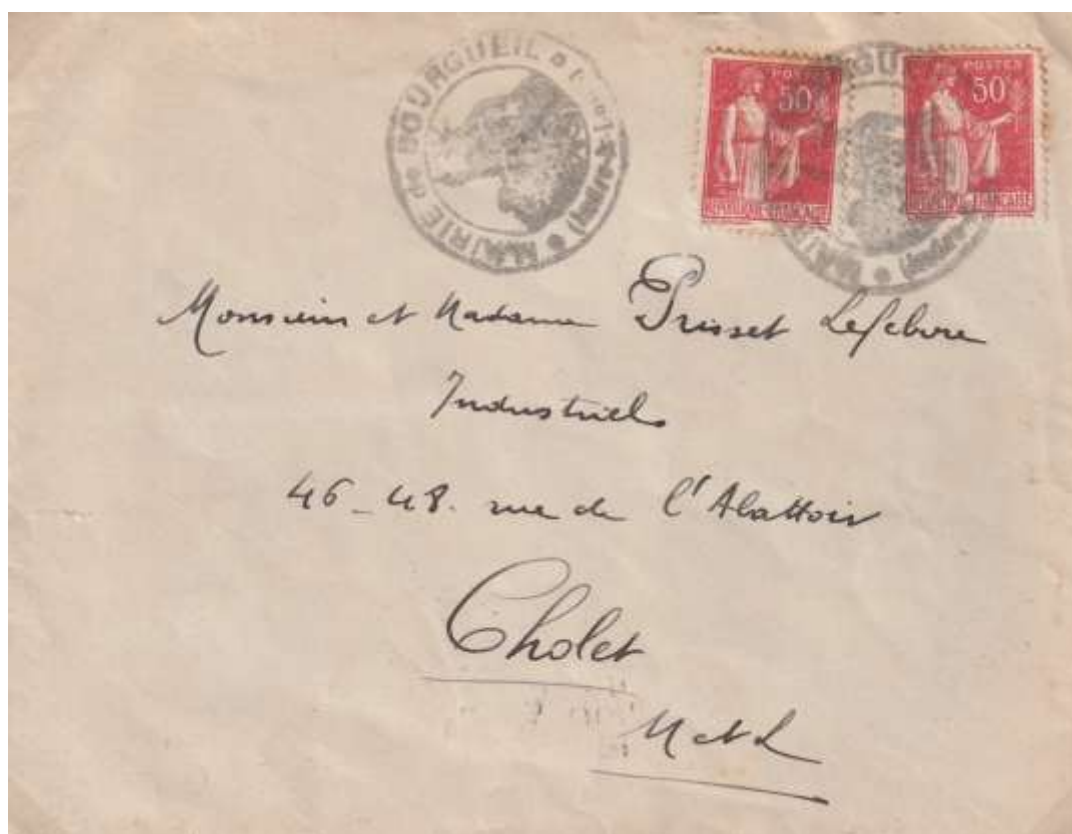 MAIRIE de BOURGUEIL (Indre-et-Loire)
POSTES 50 REPUBLIQUE FRANÇAISE
POSTES 50 FRANÇAISE
MAIRIE
Monsieur et Madame Prisset Lefebvre
Industriels
46-48. rue de l'Abattoir
Cholet
M et L